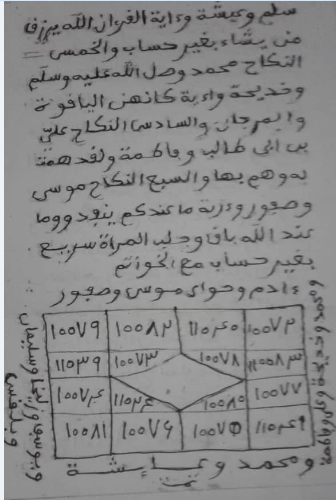 سليم وعيشة وءاية القرءان الله يرزق
من يشاء بغير حساب والخمس
النكاح محمد وصل الله عليه وسلم
وخديجة وءاية كانهن الياقوت
والمرجان والسادس النكاح علي
بن ابي طالب وفاطمة ولقد همت
به وهم بها والسبع النكاح موسى
وصفور وءاية ما عندكم ينفد وما
عند الله باق وجلب المراة سريع
بغير حساب مع الخواتم
ءادم وحواء موسى وصفور
١٠٠٧٩ ١٠٠٨٢ ١١٥٤٥ ١٠٠٧٢
١١٥٣٩ ١٠٠٧٣ ١٠٠٧٨ ١١٠٠٨٣
١٠٠٧٤ ١١٥٣٤ ١٠٠٨٠ ١٠٠٧٧
١٠٠٨١ ١٠٠٧٦ ١٠٠٧٥ ١١٥٤٩
ويوسف وزليخا وسليمان
وبلقس
ومحمد وعايشة
تمت